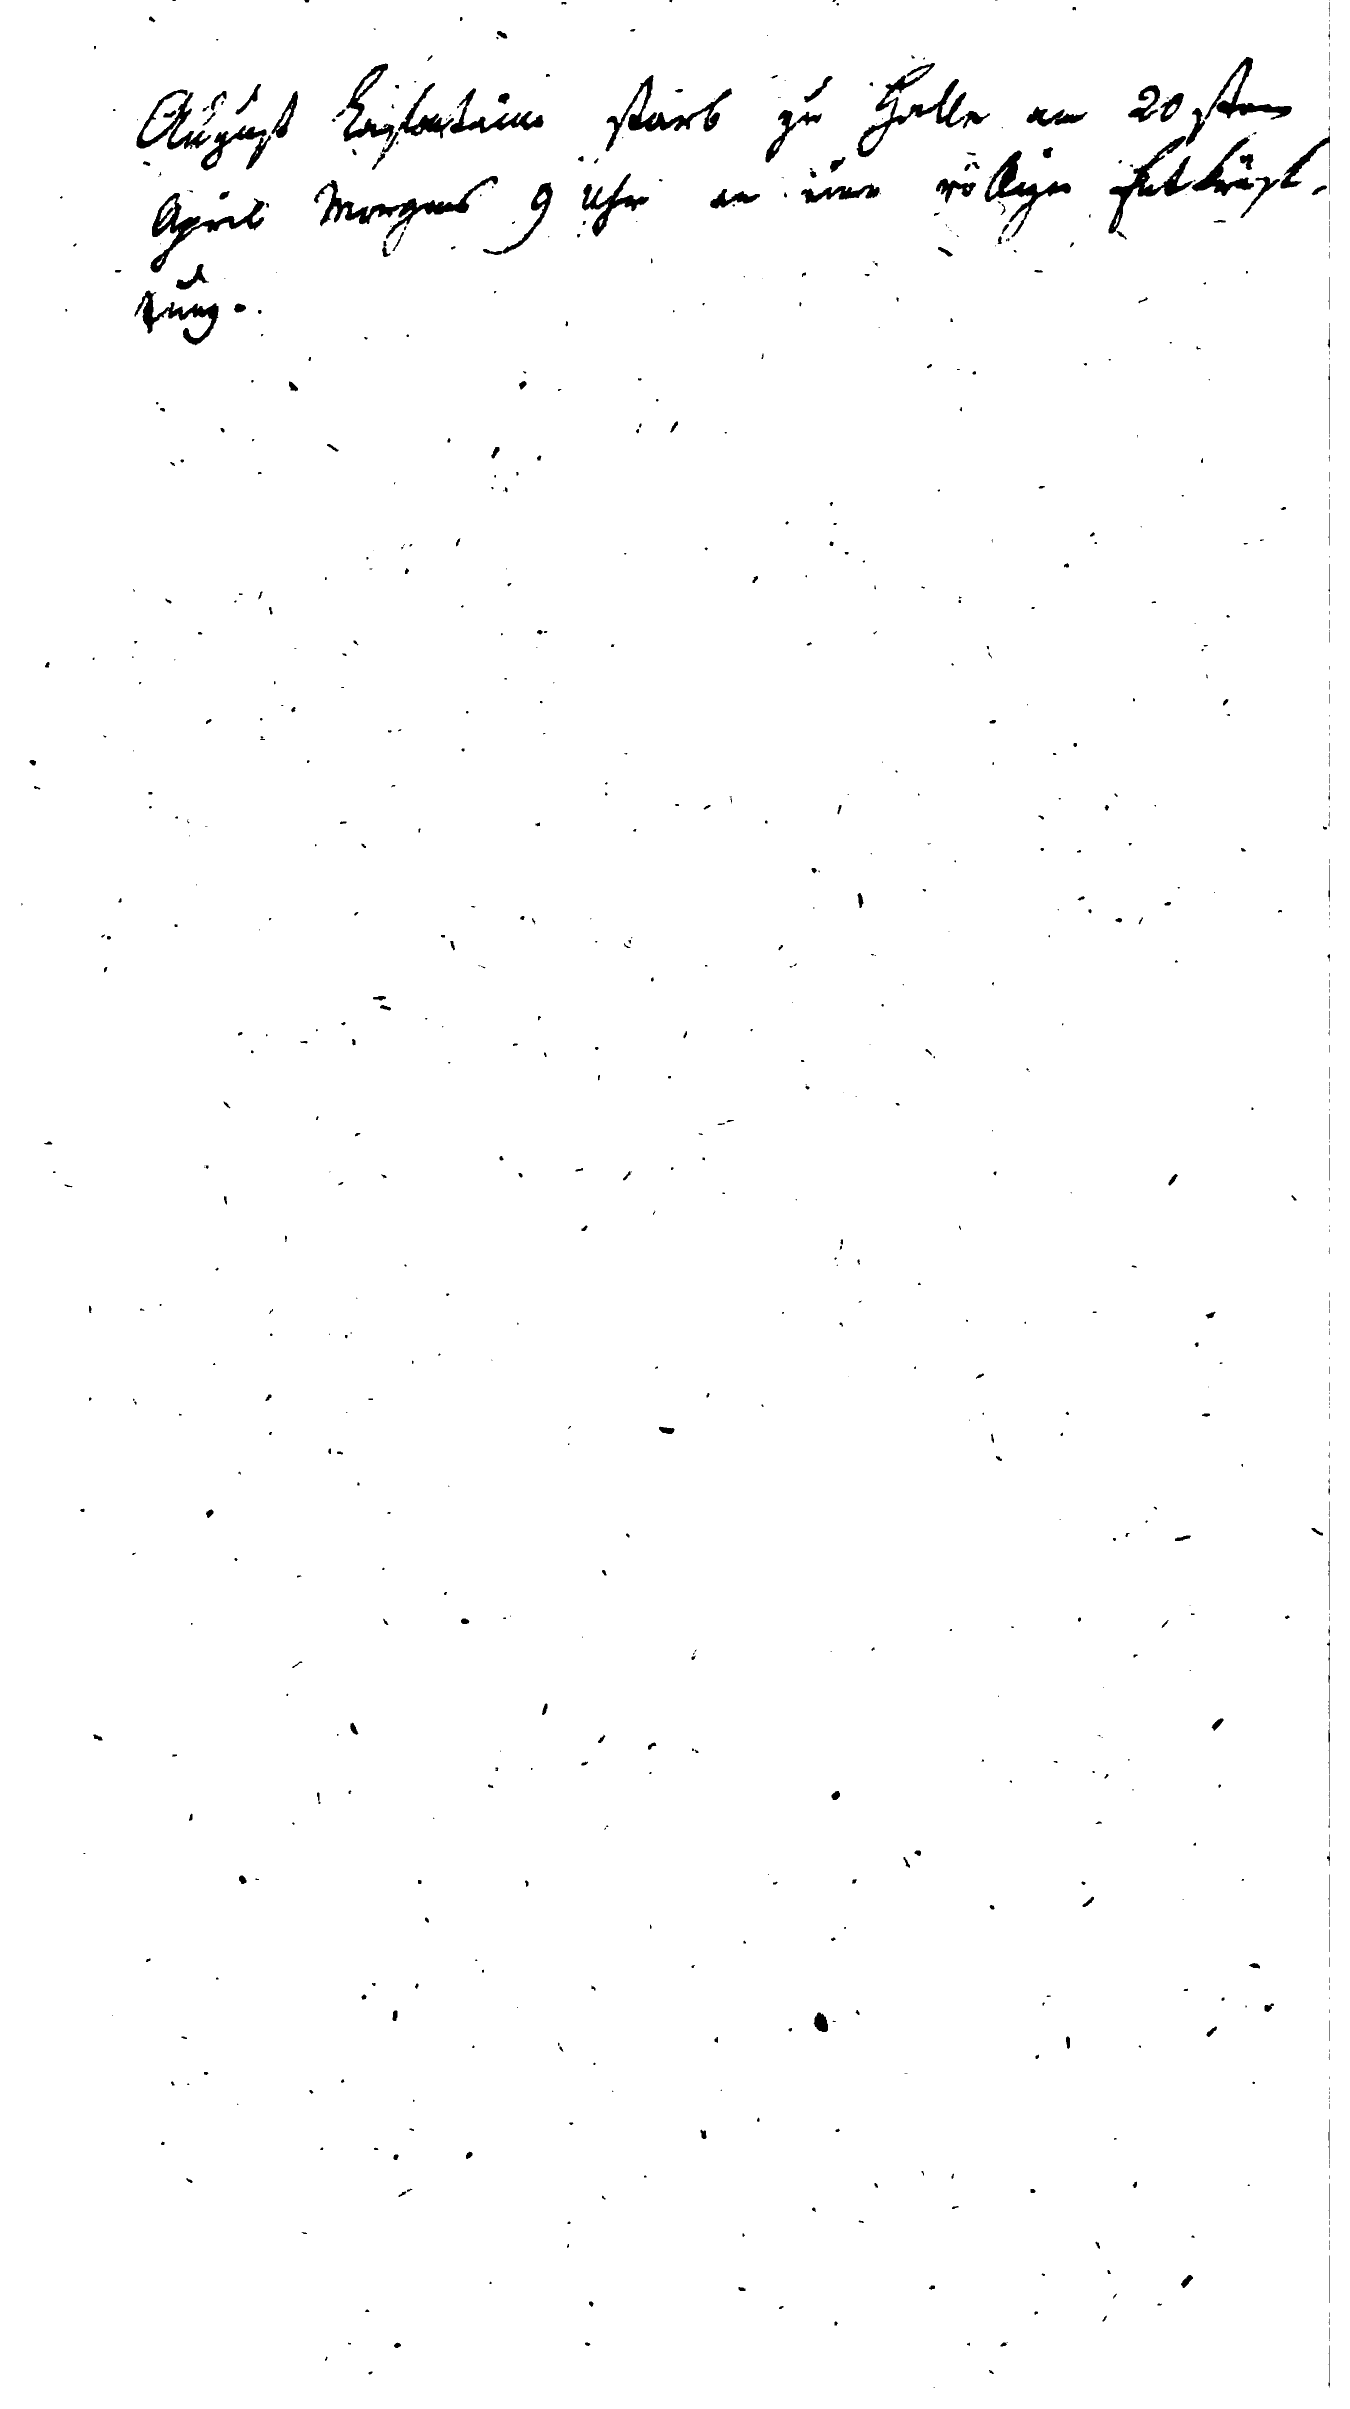 August Lafontaine starb zu Halle am 20 sten
April Morgens 9 Uhr an einer völligen Entkräft-
tung.